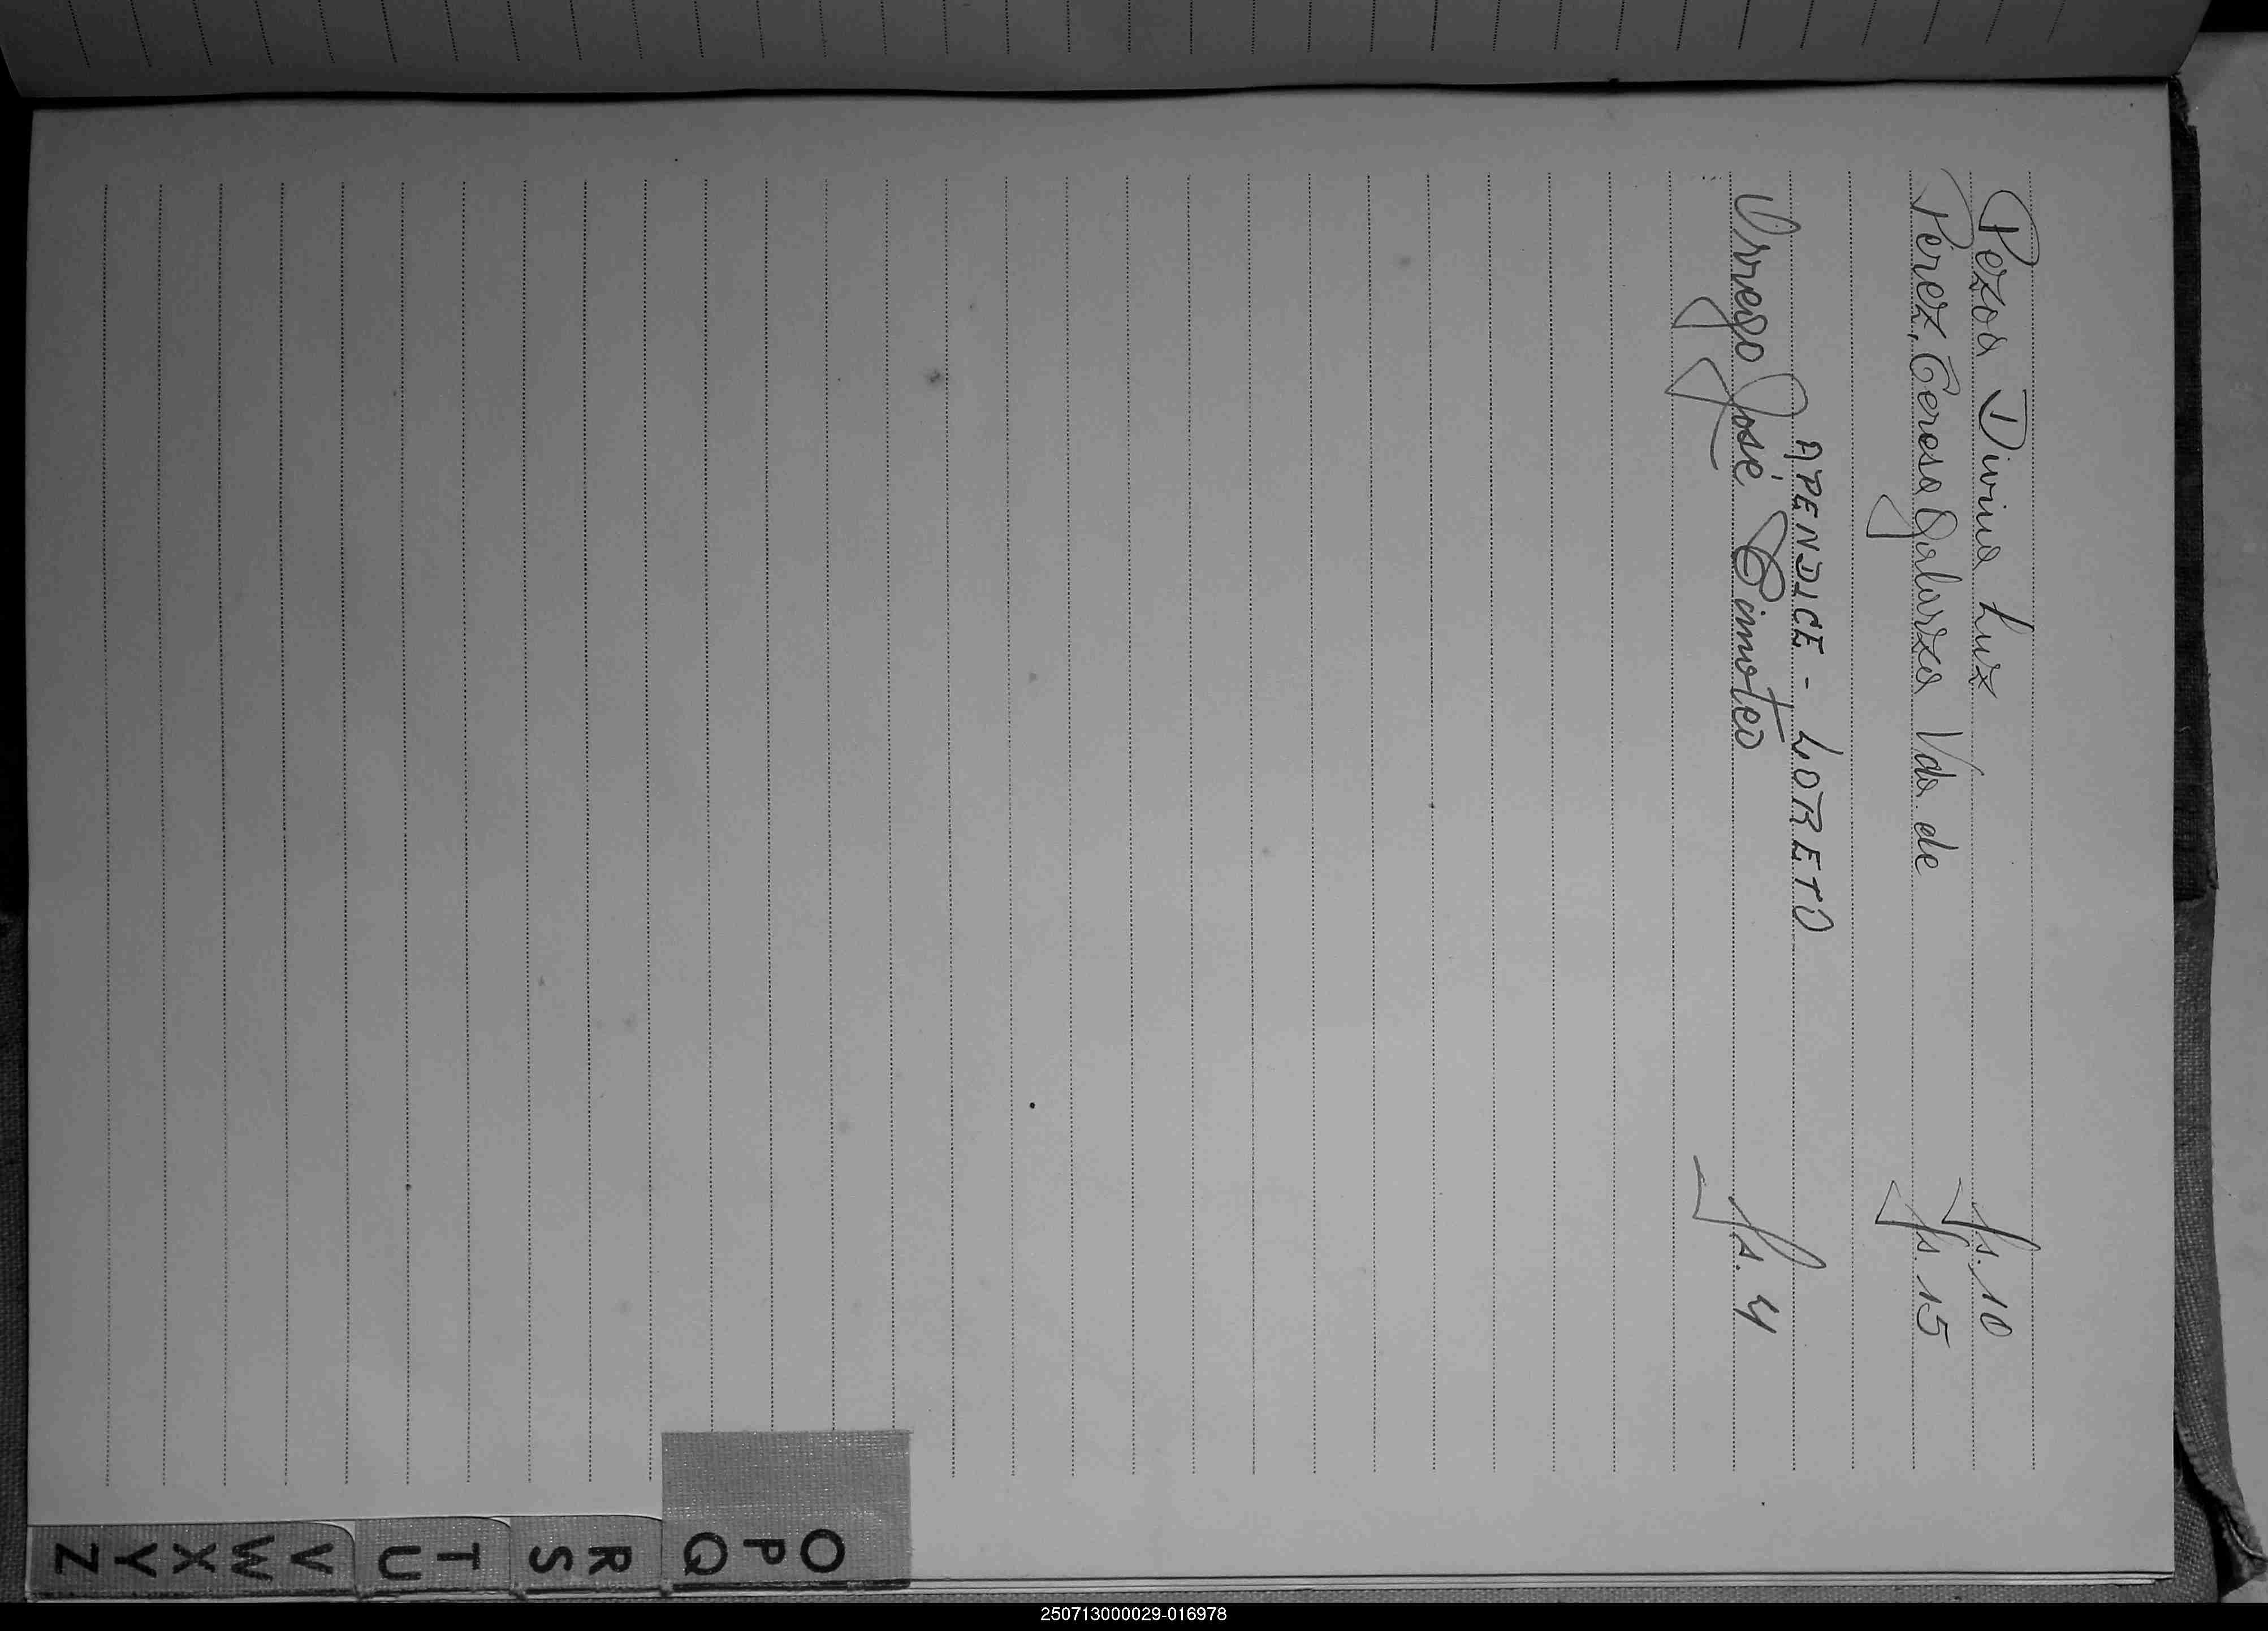 Pezoa Divina Luz fs. 10
Pérez, Teresa Galarza Vda de fs. 15
APENDICE - LORETO
Orrego José Timoteo fs. 4
O
P
Q
R
S
T
U
V
W
X
Y
Z
250713000029-016978